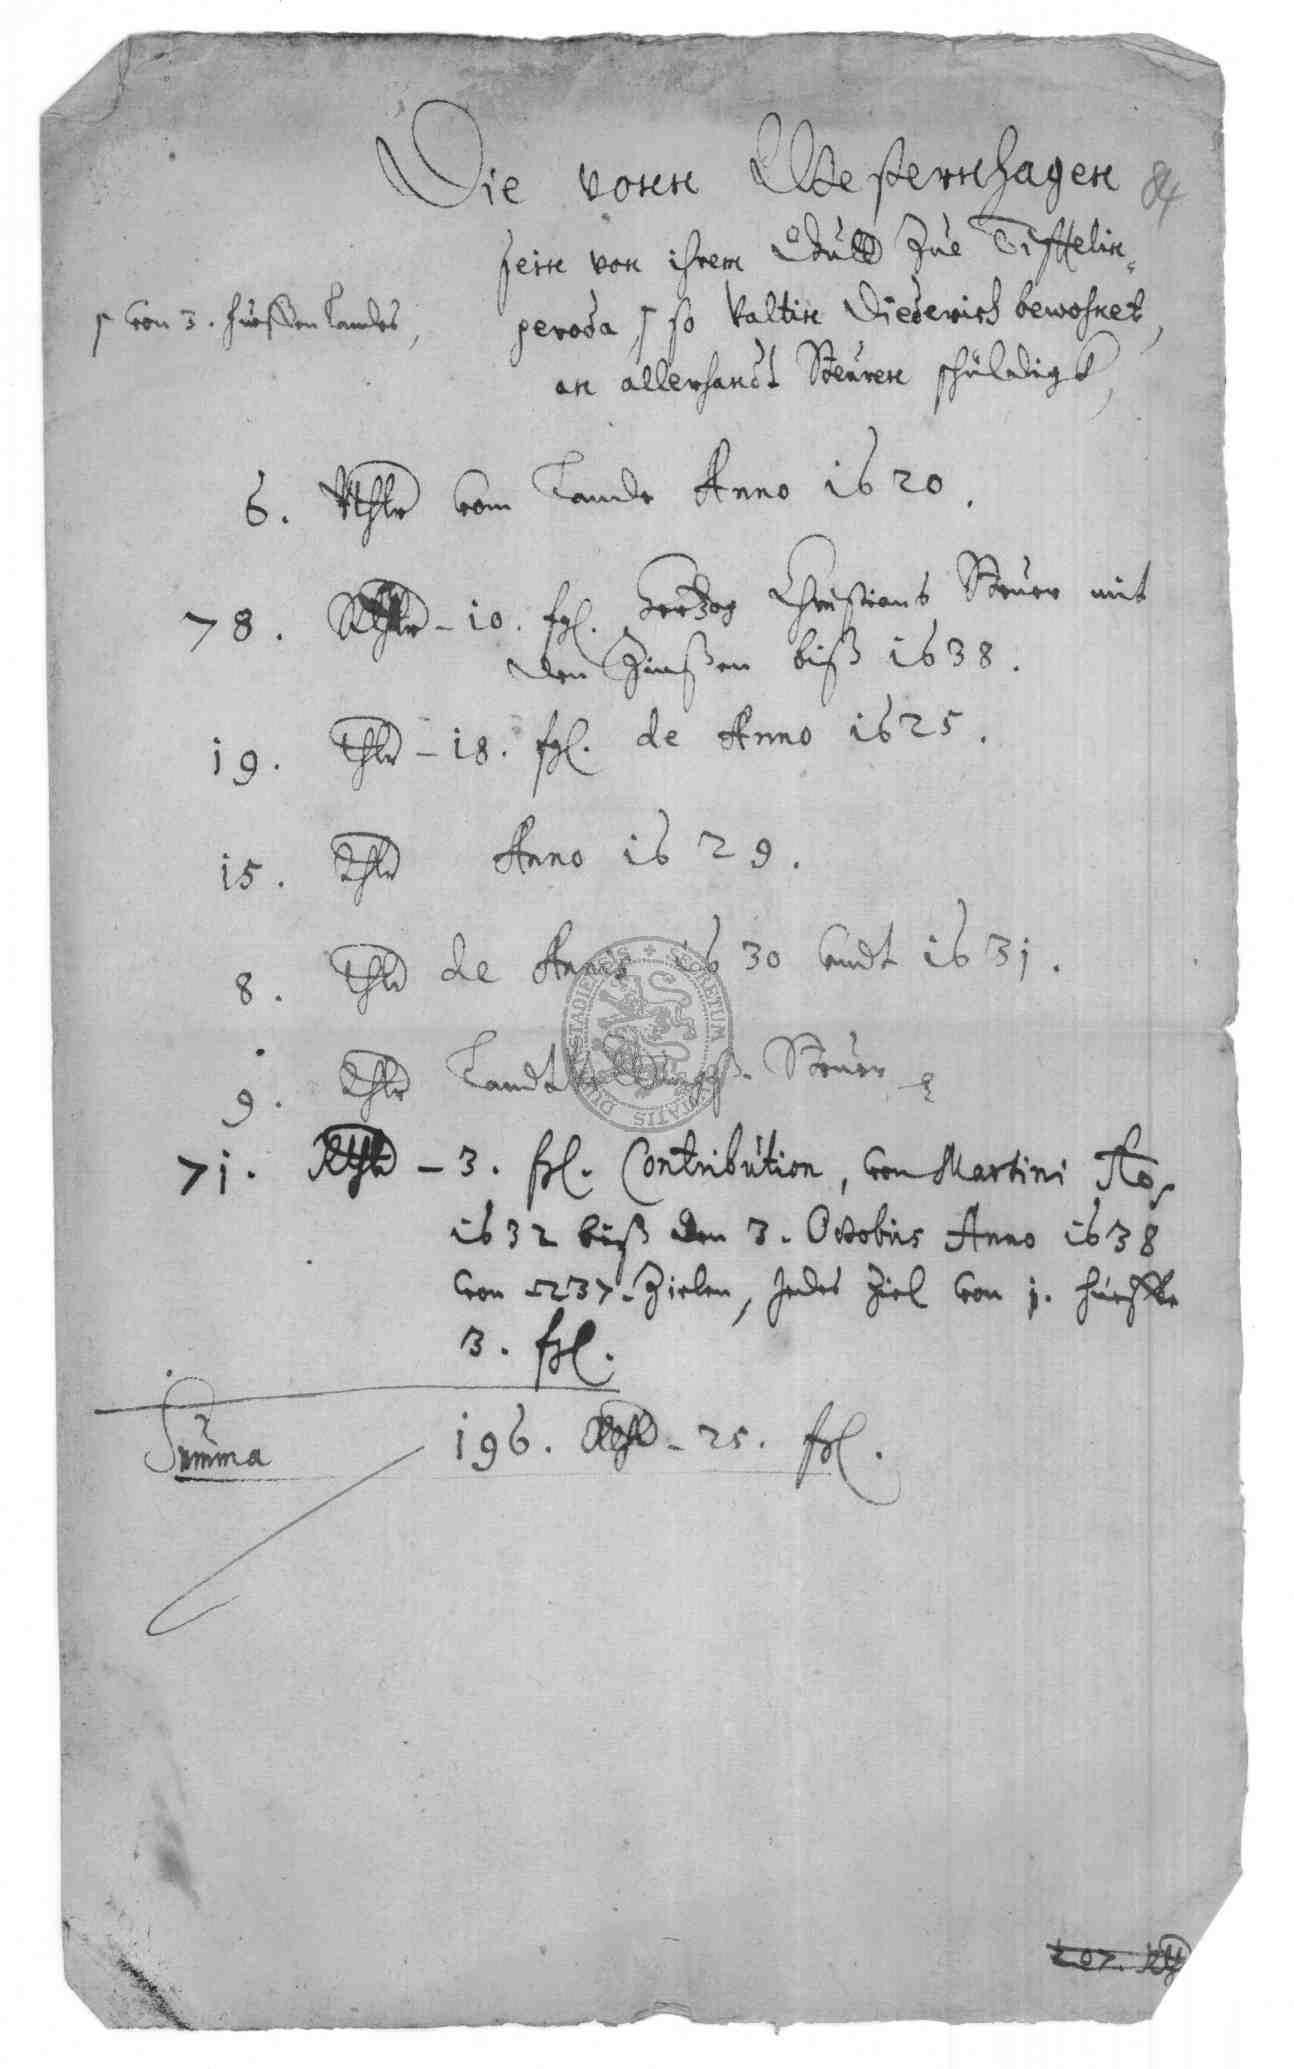 Die vonn Westernhagen
84
sein von ihrem Guett zue Tifftelin-
geroda, ⌈ so Valtin Diederich bewohnet,
⌈ von 3. hueffen Landes,
an allerhandt Steuren schüldigk,
6. Rthlr vom Lande Anno 1620.
78. Rthlr - 10. fgl. Hertzog Christians Steuer mit
den Zinßen biß 1638.
19. Thlr - 18. fgl. de Anno 1625.
15. Thlr Anno 1629.
8. Thlr de Annis 1630 undt 1631.
9. Thlr Landt Steuer
71. Rthlr - 3. fgl. Contribution, von Martini Ao.
1632 biß den 3. Octobris Anno 1638
von 237. Zielen, jedes Ziel von 1. hueffe
3. fgl.
Summa 196. Rthlr - 25. fgl.
207. Rth